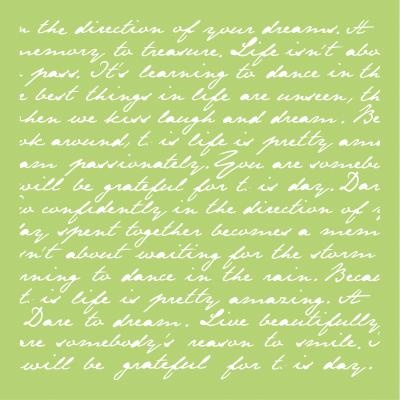 n the direction of your dreams. A
memory to treasure. Life isn't abo
pass. It's learning to dance in th
e best things in life are unseen, th
when we kiss laugh and dream. Be
ok around, t. is life is pretty ama
am passionately. You are somebo
will be grateful for t. is day. Dar
o confidently in the direction of y
ay spent together becomes a mem
sn't about waiting for the storm
rning to dance in the rain. Becau
t. is life is pretty amazing. A
Dare to dream. Live beautifully,
are somebody's reason to smile.
will be grateful for t. is day.